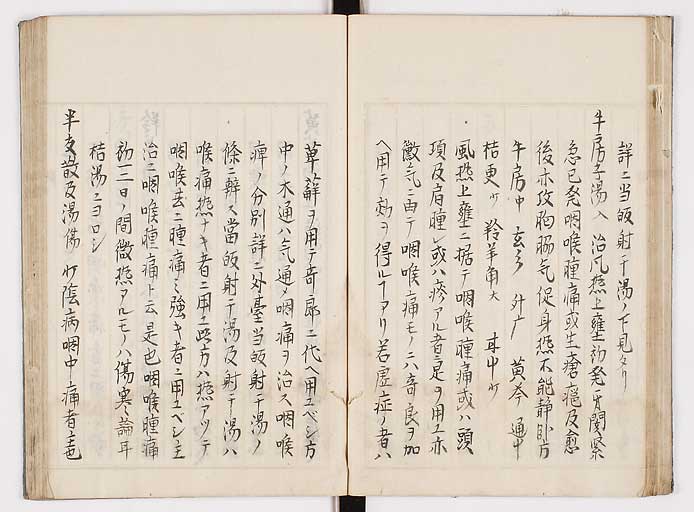 詳ニ当皈射干湯ノ下見タリ
牛房子湯 治風熱上壅初発宵悶緊
急已発咽喉腫痛或生瘡癰及愈
後亦攻胸脇気促身熱不能静臥方
牛房中 玄参 升广 黄芩 通中
桔更 羚羊角大 甘中
風熱上壅ニ据テ咽喉腫痛或ハ頭
項及肩腫レ或ハ疹アル者是ヲ用ユ亦
黴気ニ由テ咽喉痛モノニハ奇良ヲ加
ヘ用テ効ヲ得ルヿアリ若虚症ノ者ハ
萆薢ヲ用テ奇良ニ代ヘ用ユベシ方
中ノ木通ハ気通メ咽痛ヲ治ス咽喉
痺ノ分別詳ニ外臺当皈射干湯ノ
條ニ辨ス當皈射干湯及射干湯ハ
喉痛熱ナキ者ニ用ユ此方ハ熱アツテ
咽喉甚ニ腫痛ミ強キ者ニ用ユベシ主
治ニ咽喉腫痛ト云是也咽喉腫痛
初二三日ノ間微熱アルモノハ傷寒論耳
桔湯ニヨロシ
半夏散及湯傷 少陰病咽中痛者主